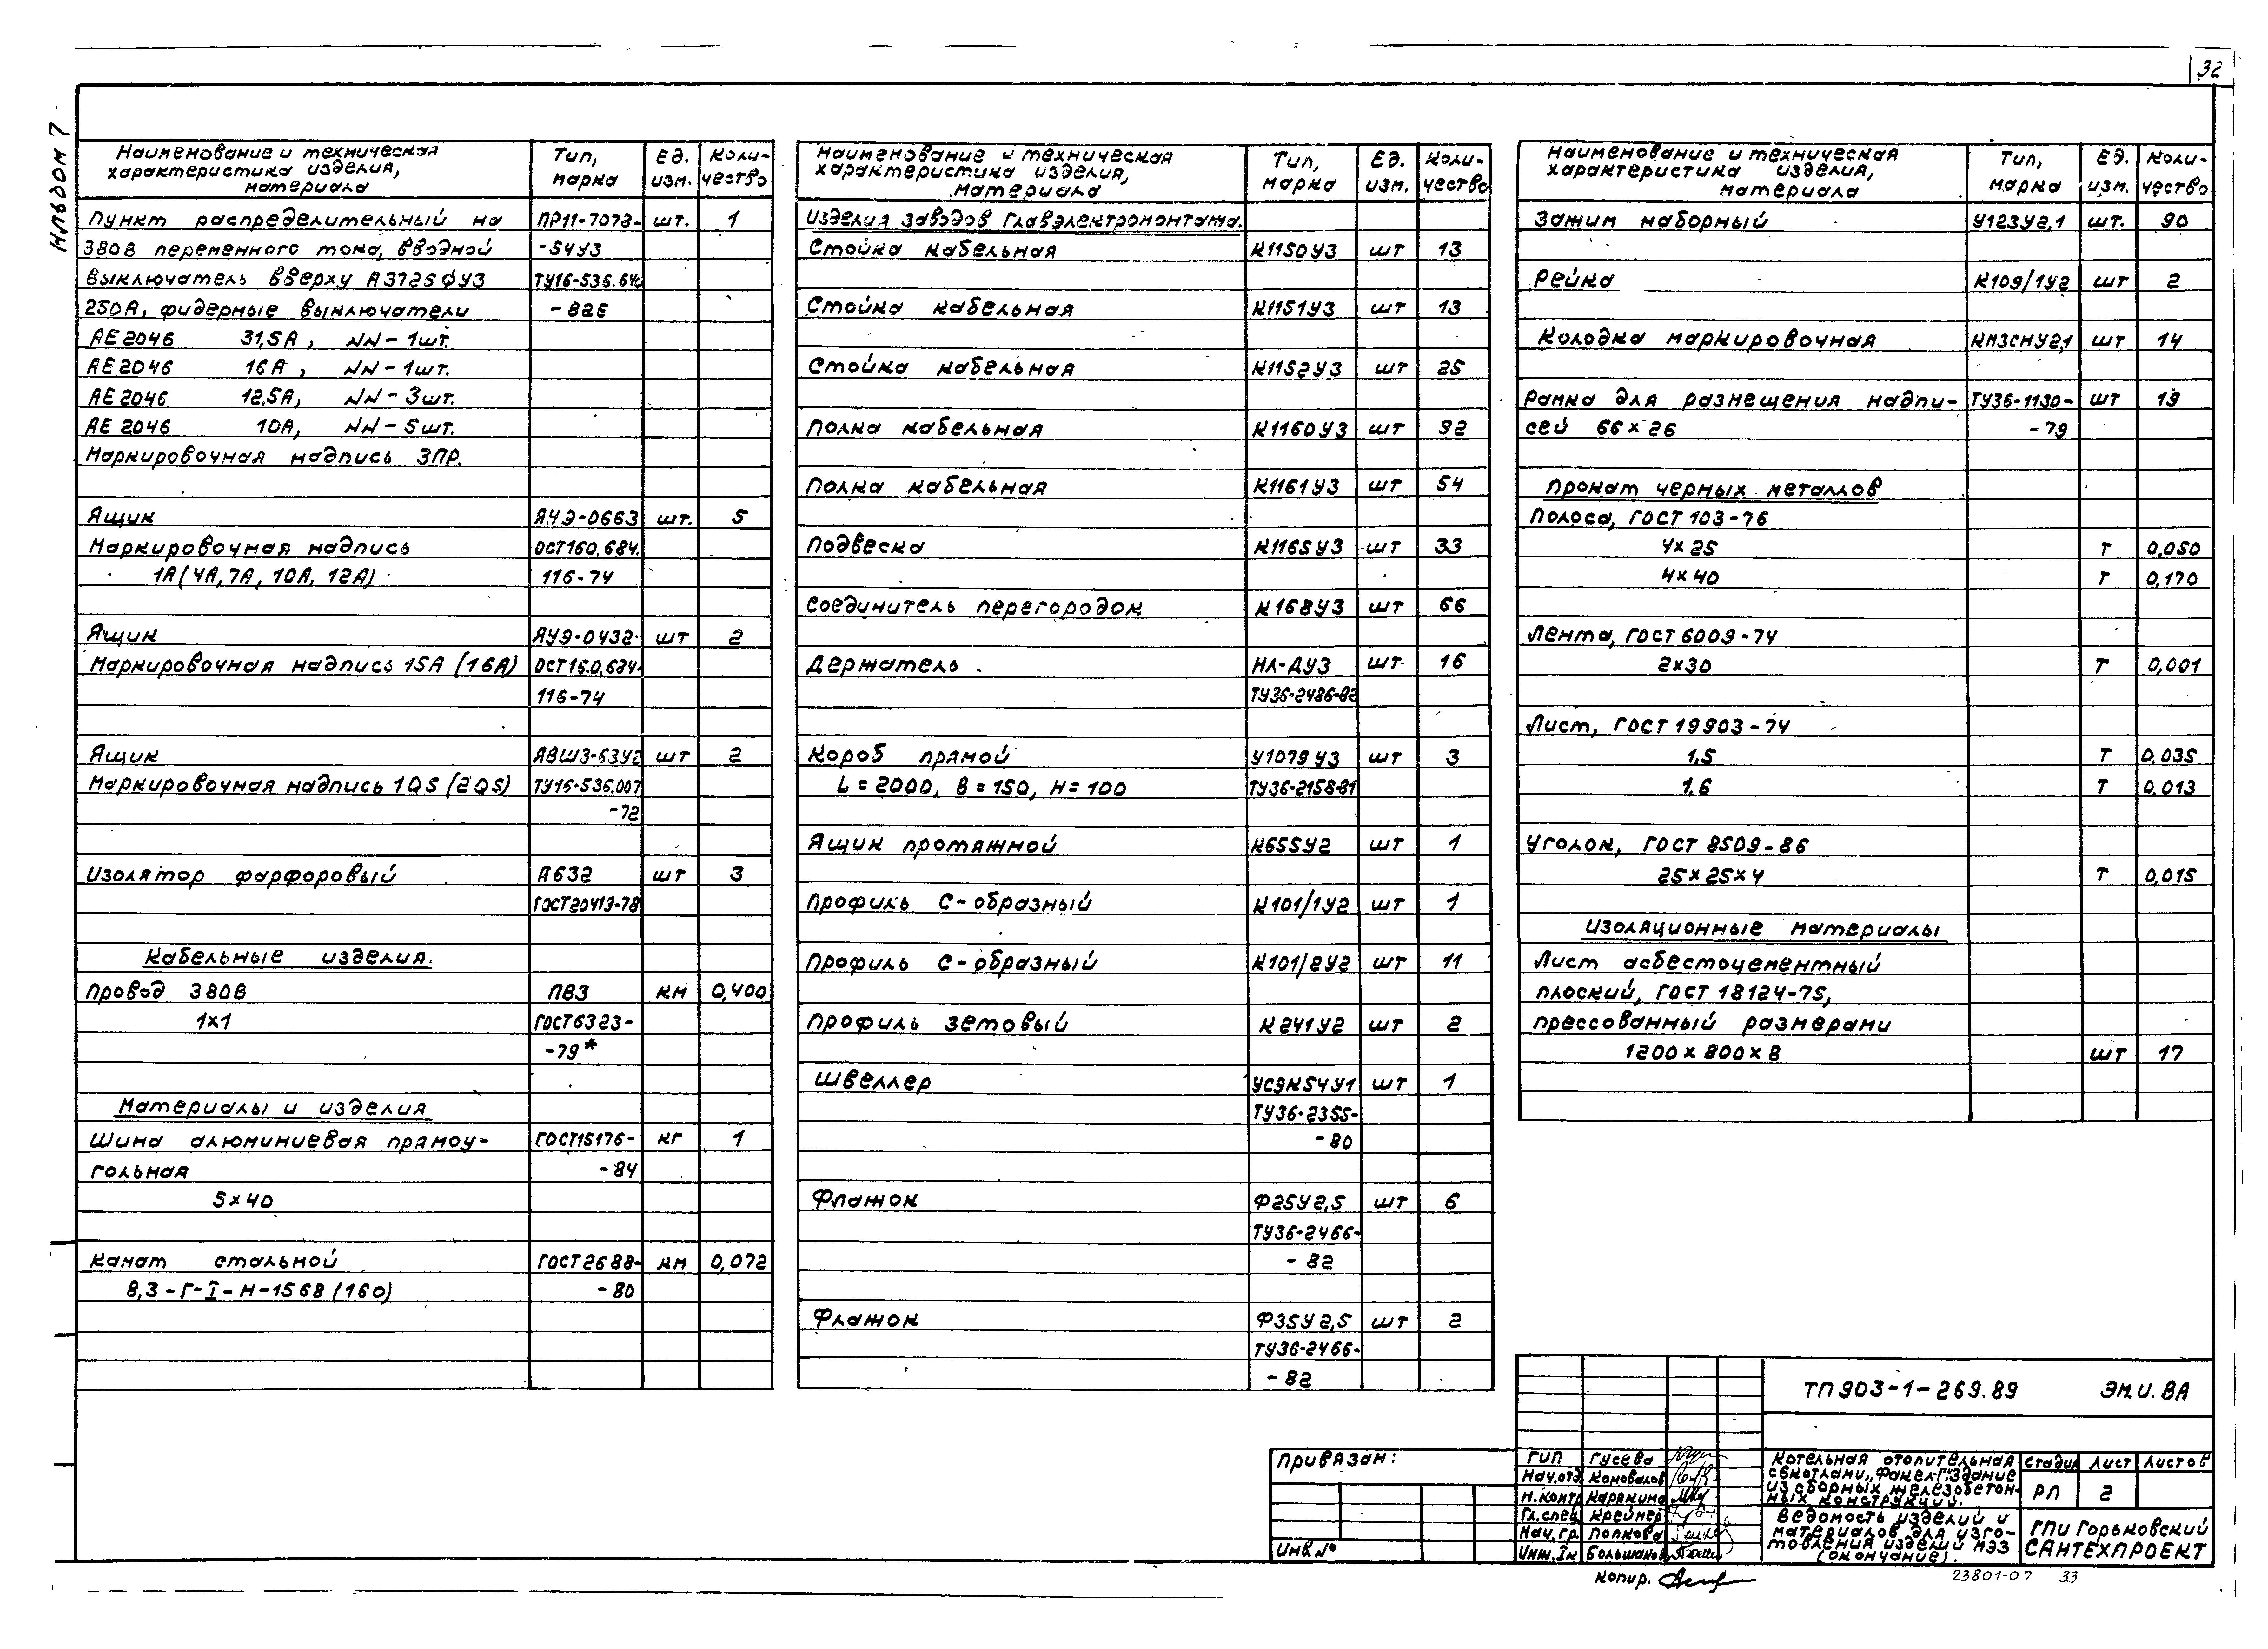 32
Альбом 7
Наименование и техническая характеристика изделия, материала | Тип, марка | Ед. изм. | Коли-чество
Пункт распределительный на | ПР11-7078- | шт. | 1
380В переменного тока, вводной | -54У3
выключатель вверху А3725ФУ3 | ТУ16-536.640
250А, фидерные выключатели | -82Е
АЕ2046 31,5А, НН-1шт.
АЕ2046 16А, НН-1шт.
АЕ2046 12,5А, НН-3шт.
АЕ2046 10А, НН-5шт.
Маркировочная надпись 3ПР.
Ящик | ЯУЭ-0663 | шт. | 5
Маркировочная надпись | ОСТ160.684.
1А(4А,7А,10А,12А) | 116-74
Ящик | ЯУЭ-0432 | шт | 2
Маркировочная надпись 15А (16А) | ОСТ16.0.684.
116-74
Ящик | ЯВШ3-63У2 | шт | 2
Маркировочная надпись 1QS (2QS) | ТУ16-536.007
-72
Изолятор фарфоровый | А632 | шт | 3
ГОСТ20419-78
Кабельные изделия.
Провод 380В | ПВ3 | км | 0,400
1х1 | ГОСТ6323-
-79*
Материалы и изделия
Шина алюминиевая прямоу- | ГОСТ15176- | кг | 1
гольная | -84
5х40
Канат стальной | ГОСТ2688- | км | 0,072
8,3-Г-I-Н-1568(160) | -80
Наименование и техническая характеристика изделия, материала | Тип, марка | Ед. изм. | Коли-чество
Изделия заводов Главэлектромонтажа.
Стойка кабельная | К1150У3 | шт | 13
Стойка кабельная | К1151У3 | шт | 13
Стойка кабельная | К1152У3 | шт | 25
Полка кабельная | К1160У3 | шт | 92
Полка кабельная | К1161У3 | шт | 54
Подвеска | К1165У3 | шт | 33
Соединитель перегородок | К168У3 | шт | 66
Держатель | НЛ-ДУ3 | шт | 16
ТУ36-2486-82
Короб прямой | У1079У3 | шт | 3
L=2000, В=150, Н=100 | ТУ36-2158-81
Ящик протяжной | К655У2 | шт | 1
Профиль С-образный | К101/1У2 | шт | 1
Профиль С-образный | К101/2У2 | шт | 11
Профиль зетовый | К241У2 | шт | 2
Швеллер | УСЭК54У1 | шт | 1
ТУ36-2355-
-80
Флажок | Ф25У2,5 | шт | 6
ТУ36-2466-
-82
Флажок | Ф35У2,5 | шт | 2
ТУ36-2466-
-82
Наименование и техническая характеристика изделия, материала | Тип, марка | Ед. изм. | Коли-чество
Зажим наборный | У123У2,1 | шт. | 90
Рейка | К109/1У2 | шт | 2
Колодка маркировочная | КМ3СНУ2,1 | шт | 14
Рамка для размещения надпи- | ТУ36-1130- | шт | 19
сей 66×26 | -79
Прокат черных металлов
Полоса, ГОСТ 103-76
4×25 | Т | 0,050
4×40 | Т | 0,170
Лента, ГОСТ 6009-74
2×30 | Т | 0,001
Лист, ГОСТ 19903-74
1,5 | Т | 0,035
1,6 | Т | 0,013
Уголок, ГОСТ 8509-86
25×25×4 | Т | 0,015
Изоляционные материалы
Лист асбестоцементный
плоский, ГОСТ 18124-75,
прессованный размерами
1200×800×8 | шт | 17
ТП903-1-269.89 ЭМ.И.ВА
Привязан:
Инв.№
ГИП Гусева
Нач.отд Коновалов
Н.контр Карякина
Гл.спец Крейнер
Нач.гр. Попкова
Инж.Iк Большаков
Котельная отопительная
с 6 котлами „Факел-Г". Здание
из сборных железобетон-
ных конструкций.
Стадия Лист Листов
РП 2
Ведомость изделий и
материалов для изго-
товления изделий МЭЗ
(окончание).
ГПИ Горьковский
САНТЕХПРОЕКТ
Копир.
23801-07 33